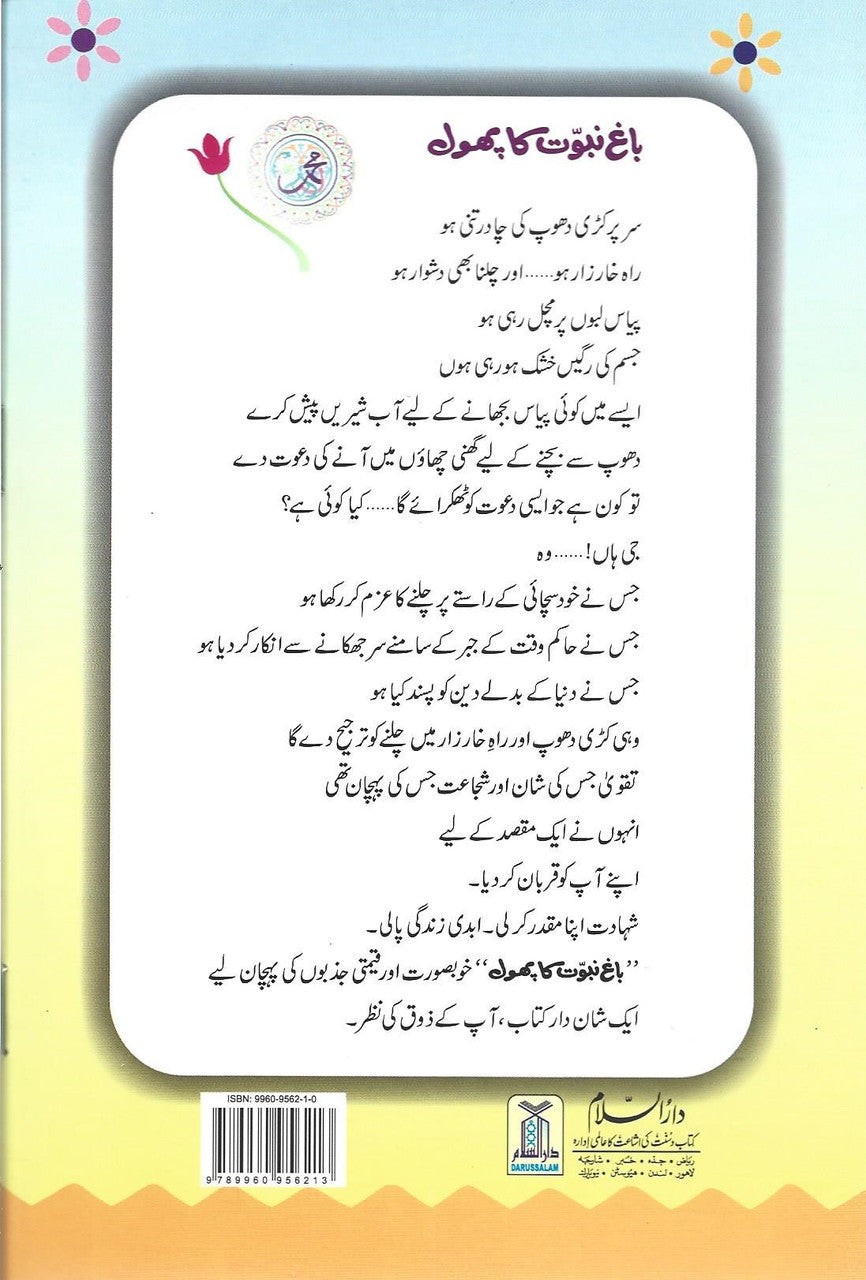 باغِ نبوّت کا پھول
محمد
سر پر کڑی دھوپ کی چادر تنی ہو
راہ خار زار ہو......اور چلنا بھی دشوار ہو
پیاس لبوں پر مچل رہی ہو
جسم کی رگیں خشک ہو رہی ہوں
ایسے میں کوئی پیاس بجھانے کے لیے آب شیریں پیش کرے
دھوپ سے بچنے کے لیے گھنی چھاؤں میں آنے کی دعوت دے
تو کون ہے جو ایسی دعوت کو ٹھکرائے گا......کیا کوئی ہے؟
جی ہاں!......وہ
جس نے خود سچائی کے راستے پر چلنے کا عزم کر رکھا ہو
جس نے حاکم وقت کے جبر کے سامنے سر جھکانے سے انکار کر دیا ہو
جس نے دنیا کے بدلے دین کو پسند کیا ہو
وہی کڑی دھوپ اور راہِ خار زار میں چلنے کو ترجیح دے گا
تقویٰ جس کی شان اور شجاعت جس کی پہچان تھی
انہوں نے ایک مقصد کے لیے
اپنے آپ کو قربان کر دیا۔
شہادت اپنا مقدر کر لی۔ ابدی زندگی پا لی۔
”باغِ نبوّت کا پھول“ خوبصورت اور قیمتی جذبوں کی پہچان لیے
ایک شان دار کتاب، آپ کے ذوق کی نظر۔
ISBN: 9960-9562-1-0
9 789960 956213
دار السلام
DARUSSALAM
دارُالسّلام
کتاب و سُنّت کی اشاعت کا عالمی ادارہ
ریاض • جدہ • خُبر • شارجہ
لاہور • لندن • ہیوسٹن • نیویارک